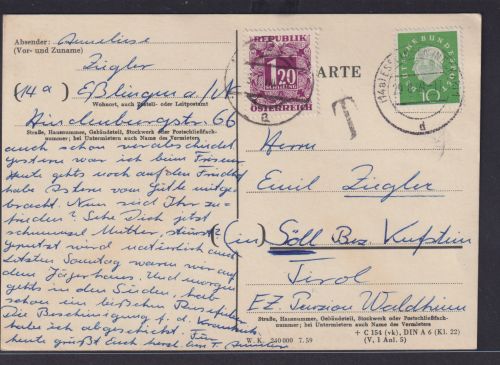 Absender: Anneliese
(Vor- und Zuname)
Ziegler
(14a) Eßlingen a/N
Wohnort, auch Zustell- oder Leitpostamt
Hindenburgstr. 66
Straße, Hausnummer, Gebäudeteil, Stockwerk oder Postschließfach-
nummer; bei Untermietern auch Name des Vermieters
auch schon verabschiedet
gestern war ich beim Friseur
Heute gehts noch auf den Friedhof
habe Astern vom Gütle mitge
bracht. Nun seid Ihr zu-
frieden? Sehe Dich jetzt
schmunzel Mutter,
geputzt wird natürlich auch
Letzten Sonntag waren wir auf
dem Jägerhaus. Und morgen
gehts in den Süden, hab
schon ein bißchen
Die Bescheinigung f. d. Krankenk.
habe ich abgeschickt. Für
heute grüßt Euch herzl.
REPUBLIK
1.20
SCHILLING
ÖSTERREICH
a
KARTE
T
DEUTSCHE BUNDESPOST
10
d
Herrn
Emil Ziegler
(in) Söll Bez. Kufstein
Tirol
EZ Pension Waldheim
Straße, Hausnummer, Gebäudeteil, Stockwerk oder Postschließfach-
nummer; bei Untermietern auch Name des Vermieters
+ C 154 (vk), DIN A 6 (Kl. 22)
W. K. 240 000 7. 59 (V, 1 Anl. 5)